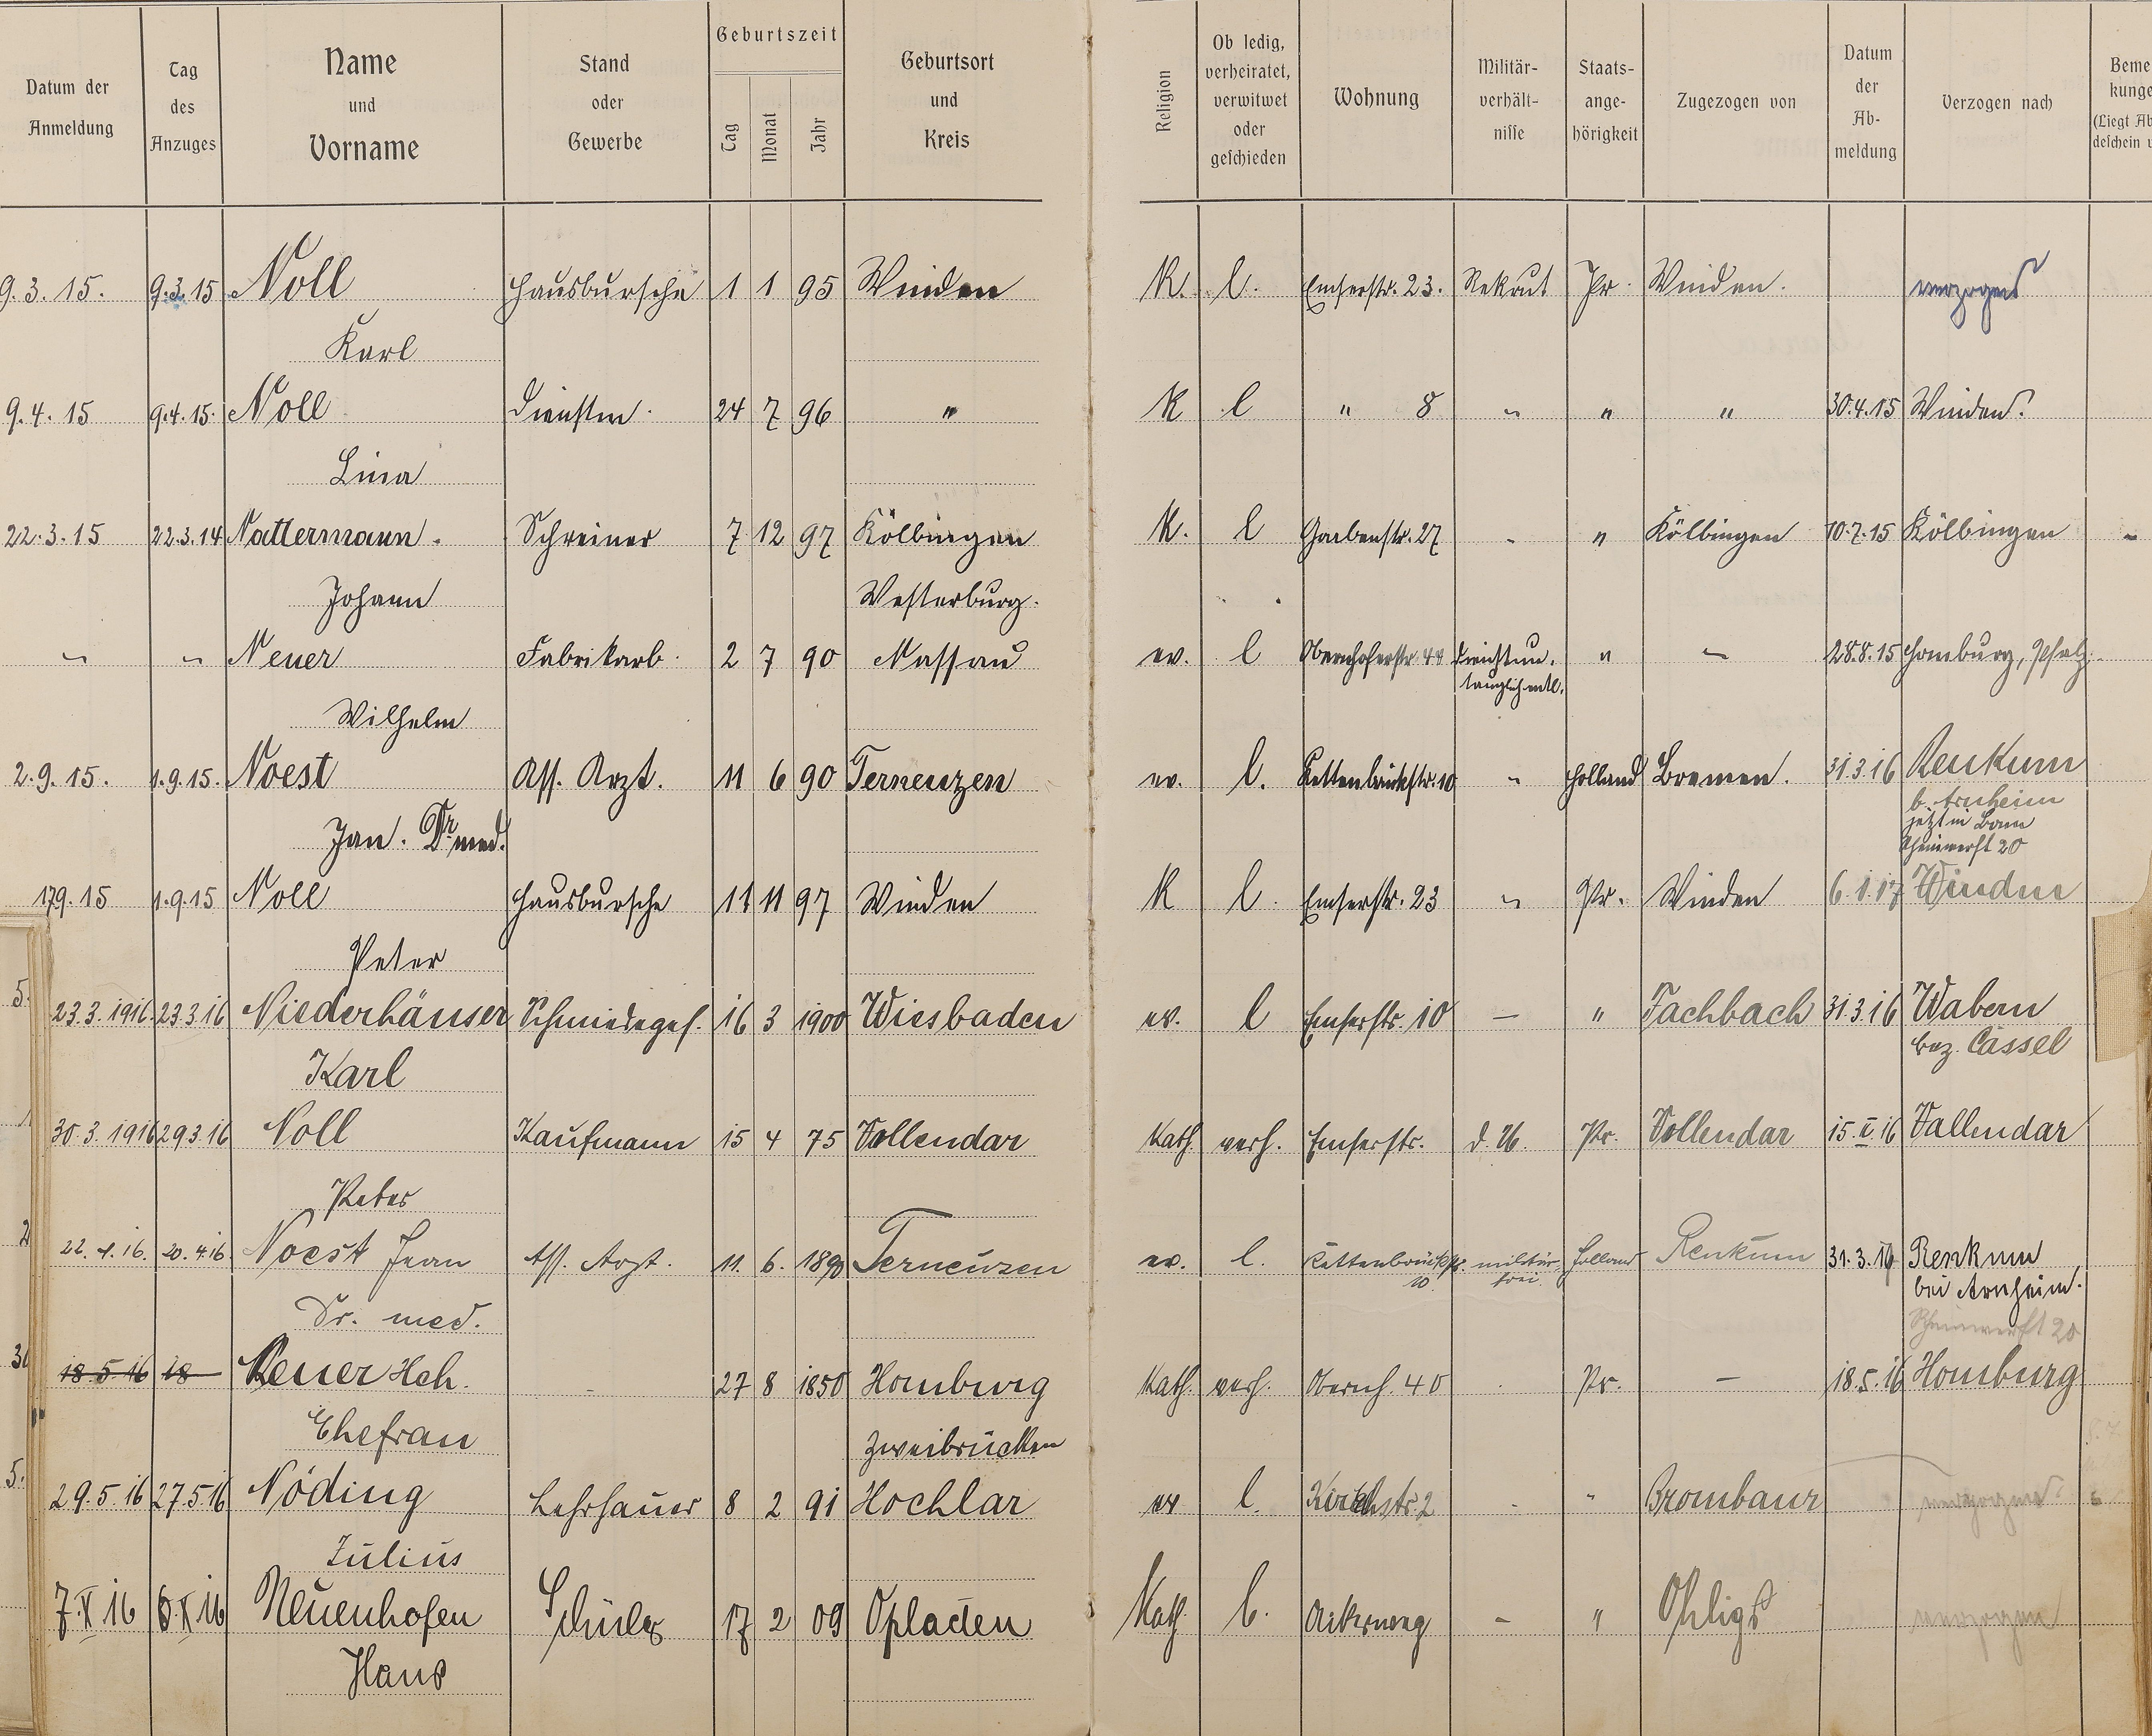 Datum der Anmeldung
Tag des Anzuges
Name und Vorname
Stand oder Gewerbe
Geburtszeit
Tag Monat Jahr
Geburtsort und Kreis
Religion
Ob ledig, verheiratet, verwitwet oder geschieden
Wohnung
Militär-verhält-nisse
Staats-ange-hörigkeit
Zugezogen von
Datum der Ab-meldung
Verzogen nach
Beme kunge (Liegt Ab deschein
9.3.15. 9.3.15 Noll Hausbursche 1 1 95 Winden K. l. Emserstr. 23. Rekrut Pr. Winden. verzogen
Karl
9.4.15 9.4.15. Noll Dienstm. 24 7 96 " K l " 8 " " " 30.4.15 Winden.
Lina
22.3.15 22.3.14 Nattermann. Schreiner 7 12 97 Kölbingen K. l Grabenstr. 27 - " Kölbingen 10.7.15 Kölbingen -
Johann Westerburg.
" " Neuer Fabrikarb. 2 7 90 Nassau ev. l Obernhoferstr. 44 dienstun. " - 28.8.15 Homburg, Pfalz.
tauglich entl.
Wilhelm
2.9.15. 1.9.15. Noest Ass. Arzt. 11 6 90 Terneuzen ev. l. Kettenbrückstr. 10 " Holland Bremen. 31.3.16 Renkum
b. Arnheim
jetzt in Bonn
Jan. Dr. med. Rheinwerft 20
179.15 1.9.15 Noll Hausbursche 11 11 97 Winden K l. Emserstr. 23 " Pr. Winden 6.1.17 Winden
Peter
23.3.1916 23.3.16 Niederhäuser Schmiedeges. 16 3 1900 Wiesbaden ev. l Emserstr. 10 — " Fachbach 31.3.16 Wabern
Karl bez. Cassel
30.3.1916 29.3.16 Noll Kaufmann 15 4 75 Vallendar Kath. verh. Emserstr. d. U. Pr. Vallendar 15.V.16 Vallendar
Peter
22.4.16. 20.4.16. Noest Jean Ass. Arzt. 11. 6. 1890 Terneuzen ev. l. Kettenbrückstr. militär Holland Renkum 31.3.16 Renkum
10. frei. bei Arnheim.
Dr. med. Rheinwerft 20
18.5.16 18 Neuer Hch. - 27 8 1850 Homburg Kath. verh. Obernh. 40 Pr. — 18.5.16 Homburg
Ehefrau Zweibrücken
29.5.16 27.5.16 Nöding Lehrhauer 8 2 91 Hochlar ev l. Kirchstr. 2 - " Brombaur verzogen
Julius
7.X.16 6.X.16 Neuenhofen Schüler 17 2 09 Opladen Kath. l. Ackerweg - " Ohligs verzogen
Hans